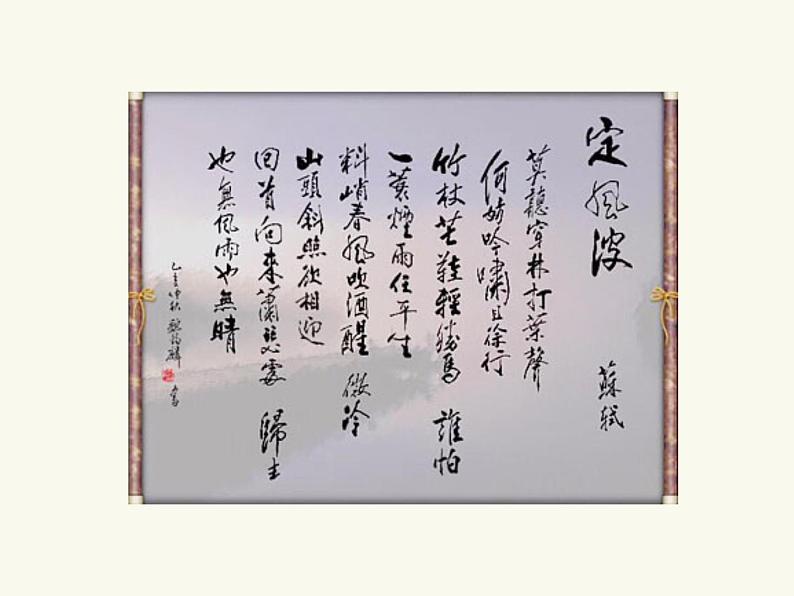 定風波 蘇軾
莫聽穿林打葉聲
何妨吟嘯且徐行
竹杖芒鞋輕勝馬 誰怕
一蓑煙雨任平生
料峭春風吹酒醒 微冷
山頭斜照欲相迎
回首向來蕭瑟處 歸去
也無風雨也無晴
亥仲秋 書